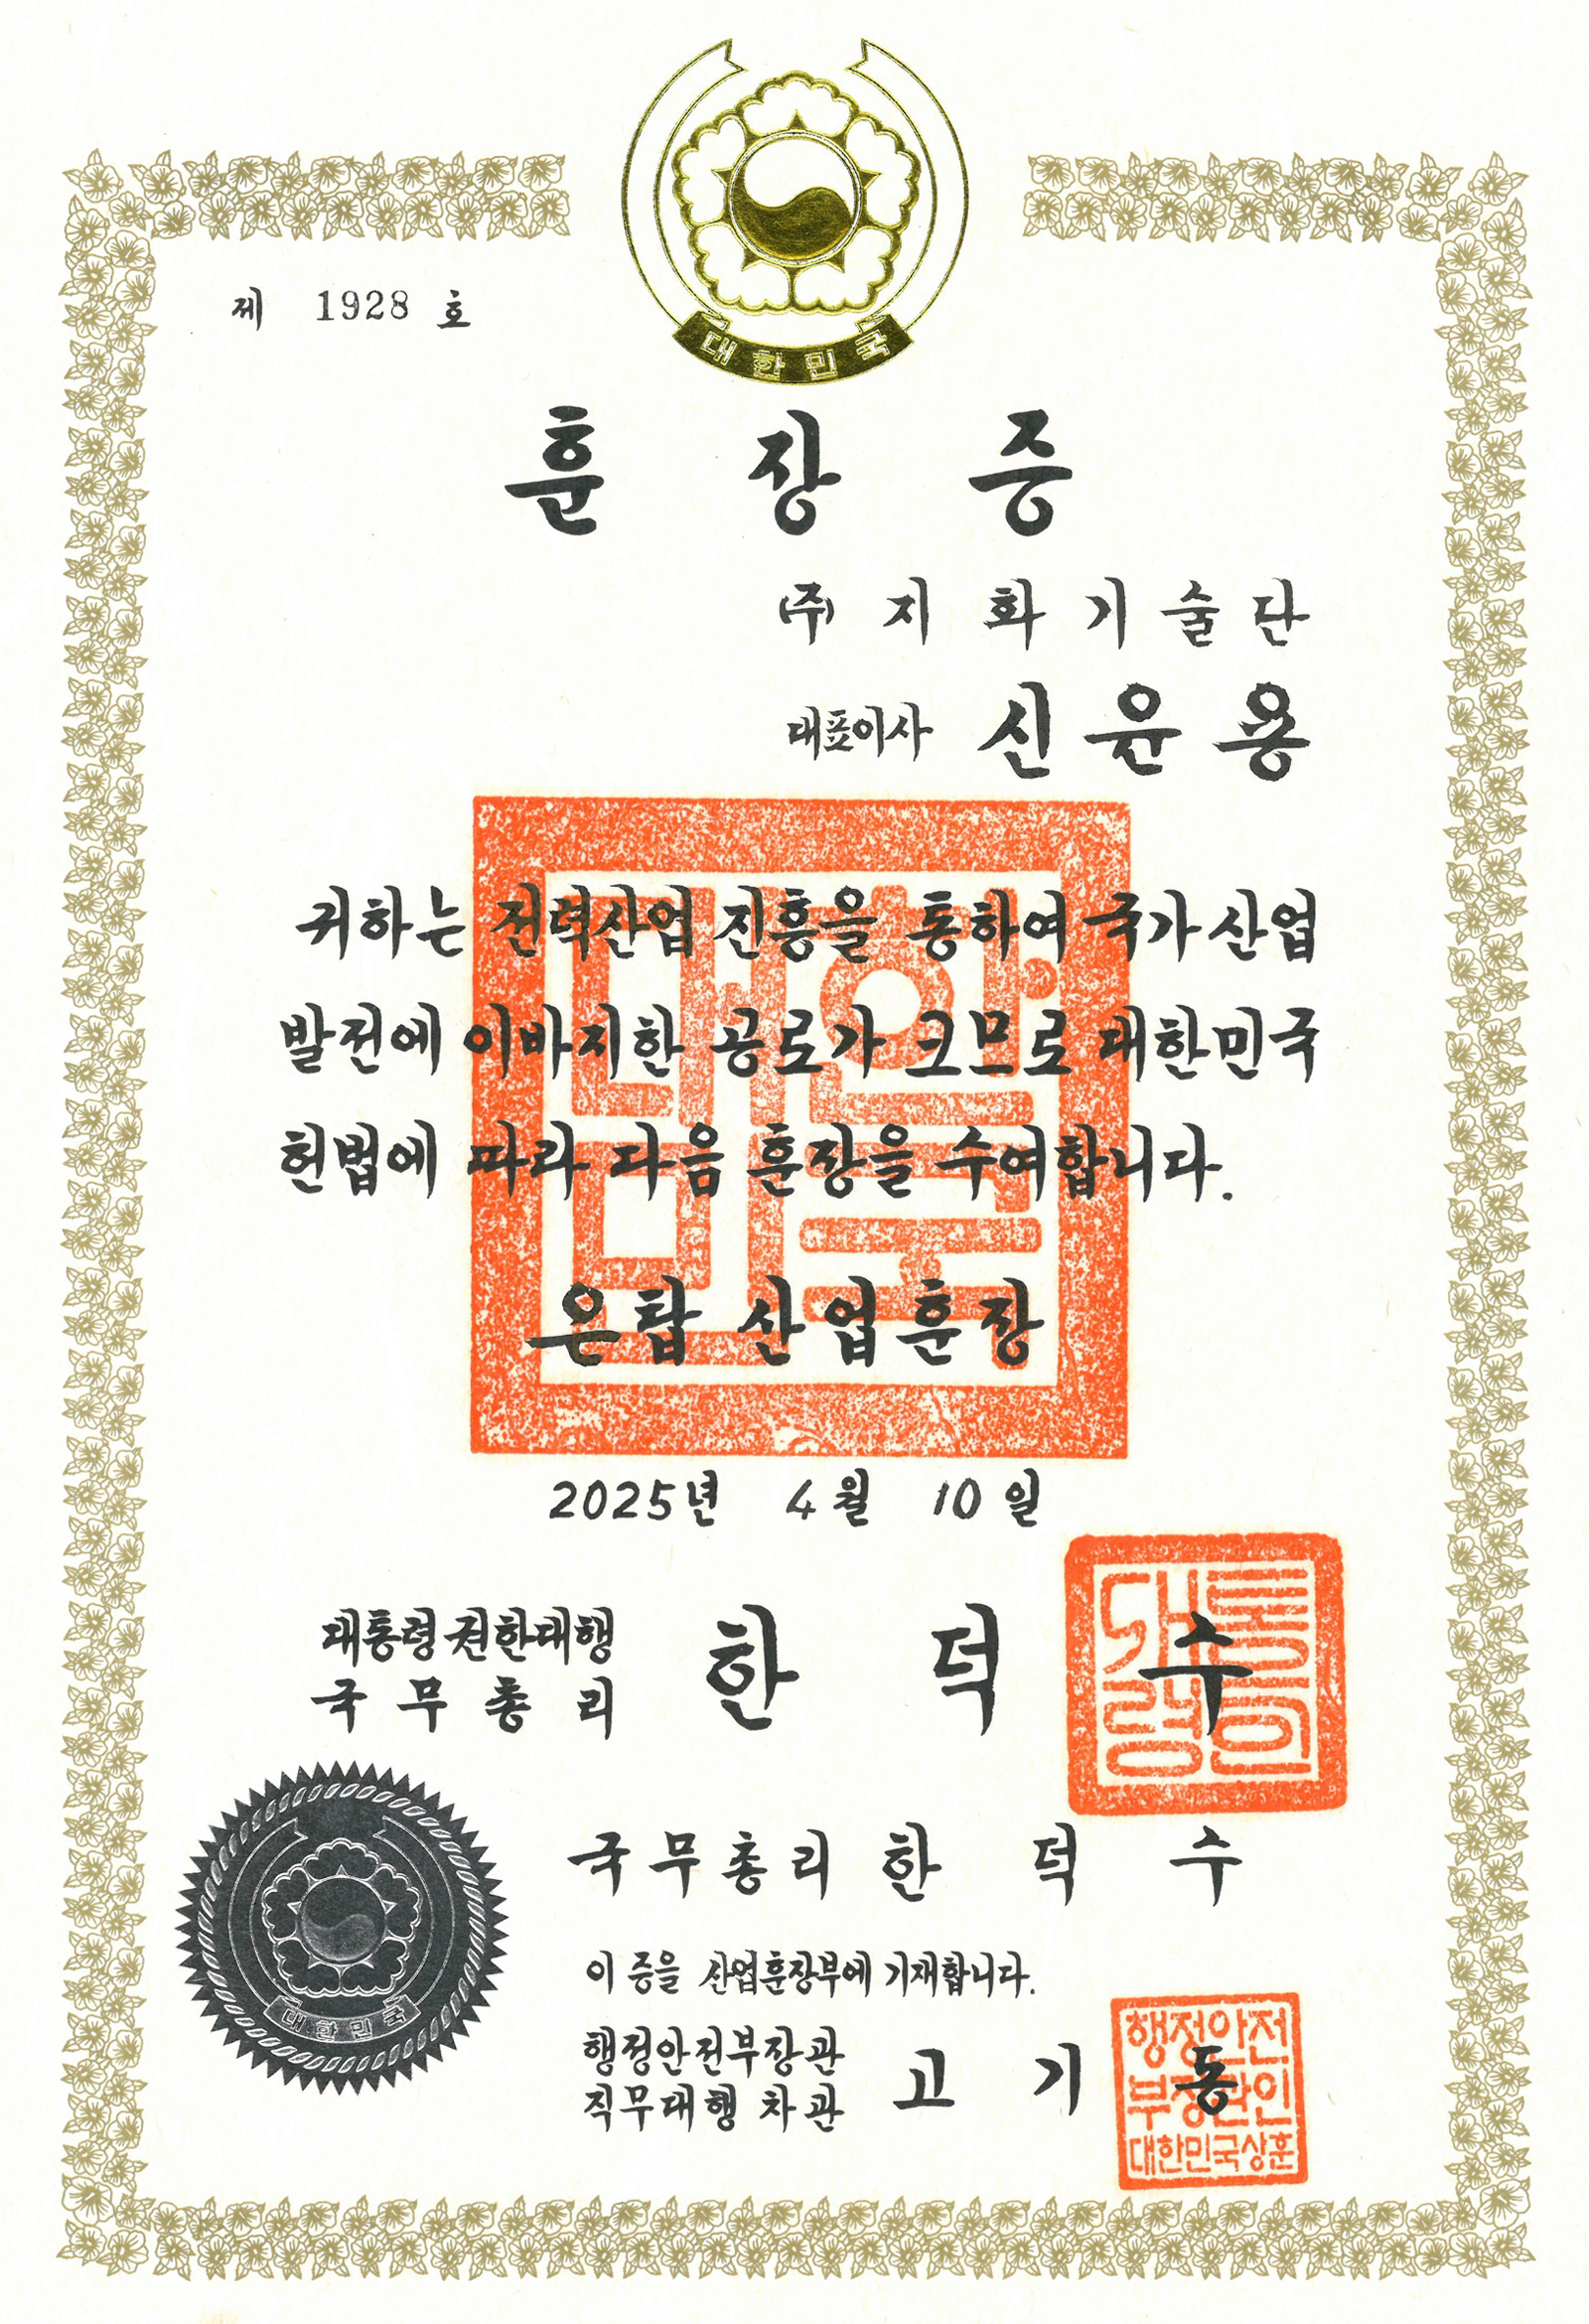 대한민국
제 1928 호
훈장증
(주) 지화기술단
대표이사 신윤용
귀하는 전력산업 진흥을 통하여 국가산업
발전에 이바지한 공로가 크므로 대한민국
헌법에 따라 다음 훈장을 수여합니다.
은탑 산업훈장
2025년 4월 10일
대통령권한대행
국무총리 한덕수
국무총리 한덕수
이 증을 산업훈장부에 기재합니다.
행정안전부장관
직무대행 차관 고기동
대한민국
행정안전
부장관인
대한민국상훈